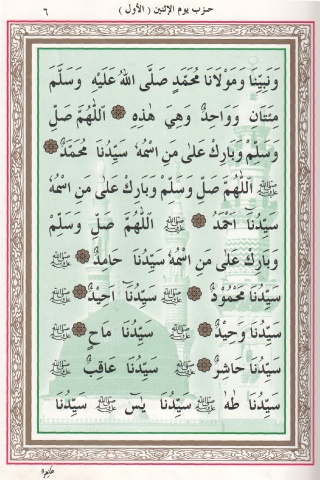 حزب يوم الإثنين ( الأول )
٦
وَنَبِيِّنَا وَمَوْلَانَا مُحَمَّدٍ صَلَّى اللهُ عَلَيْهِ وَسَلَّمَ
مِئَتَانِ وَوَاحِدٌ وَهِيَ هٰذِهِ ۞ اَللّٰهُمَّ صَلِّ
وَسَلِّمْ وَبَارِكْ عَلٰى مَنِ اسْمُهُ سَيِّدُنَا مُحَمَّدٌ ۞
ﷺ اَللّٰهُمَّ صَلِّ وَسَلِّمْ وَبَارِكْ عَلٰى مَنِ اسْمُهُ
سَيِّدُنَا اَحْمَدُ ۞ ﷺ اَللّٰهُمَّ صَلِّ وَسَلِّمْ
وَبَارِكْ عَلٰى مَنِ اسْمُهُ سَيِّدُنَا حَامِدٌ ۞ ﷺ
سَيِّدُنَا مَحْمُودٌ ۞ ﷺ سَيِّدُنَا اَحِيدٌ ۞ ﷺ
سَيِّدُنَا وَحِيدٌ ۞ ﷺ سَيِّدُنَا مَاحٍ ۞ ﷺ
سَيِّدُنَا حَاشِرٌ ۞ ﷺ سَيِّدُنَا عَاقِبٌ ۞ ﷺ
سَيِّدُنَا طٰهٰ ﷺ سَيِّدُنَا يٰسٓ ﷺ سَيِّدُنَا